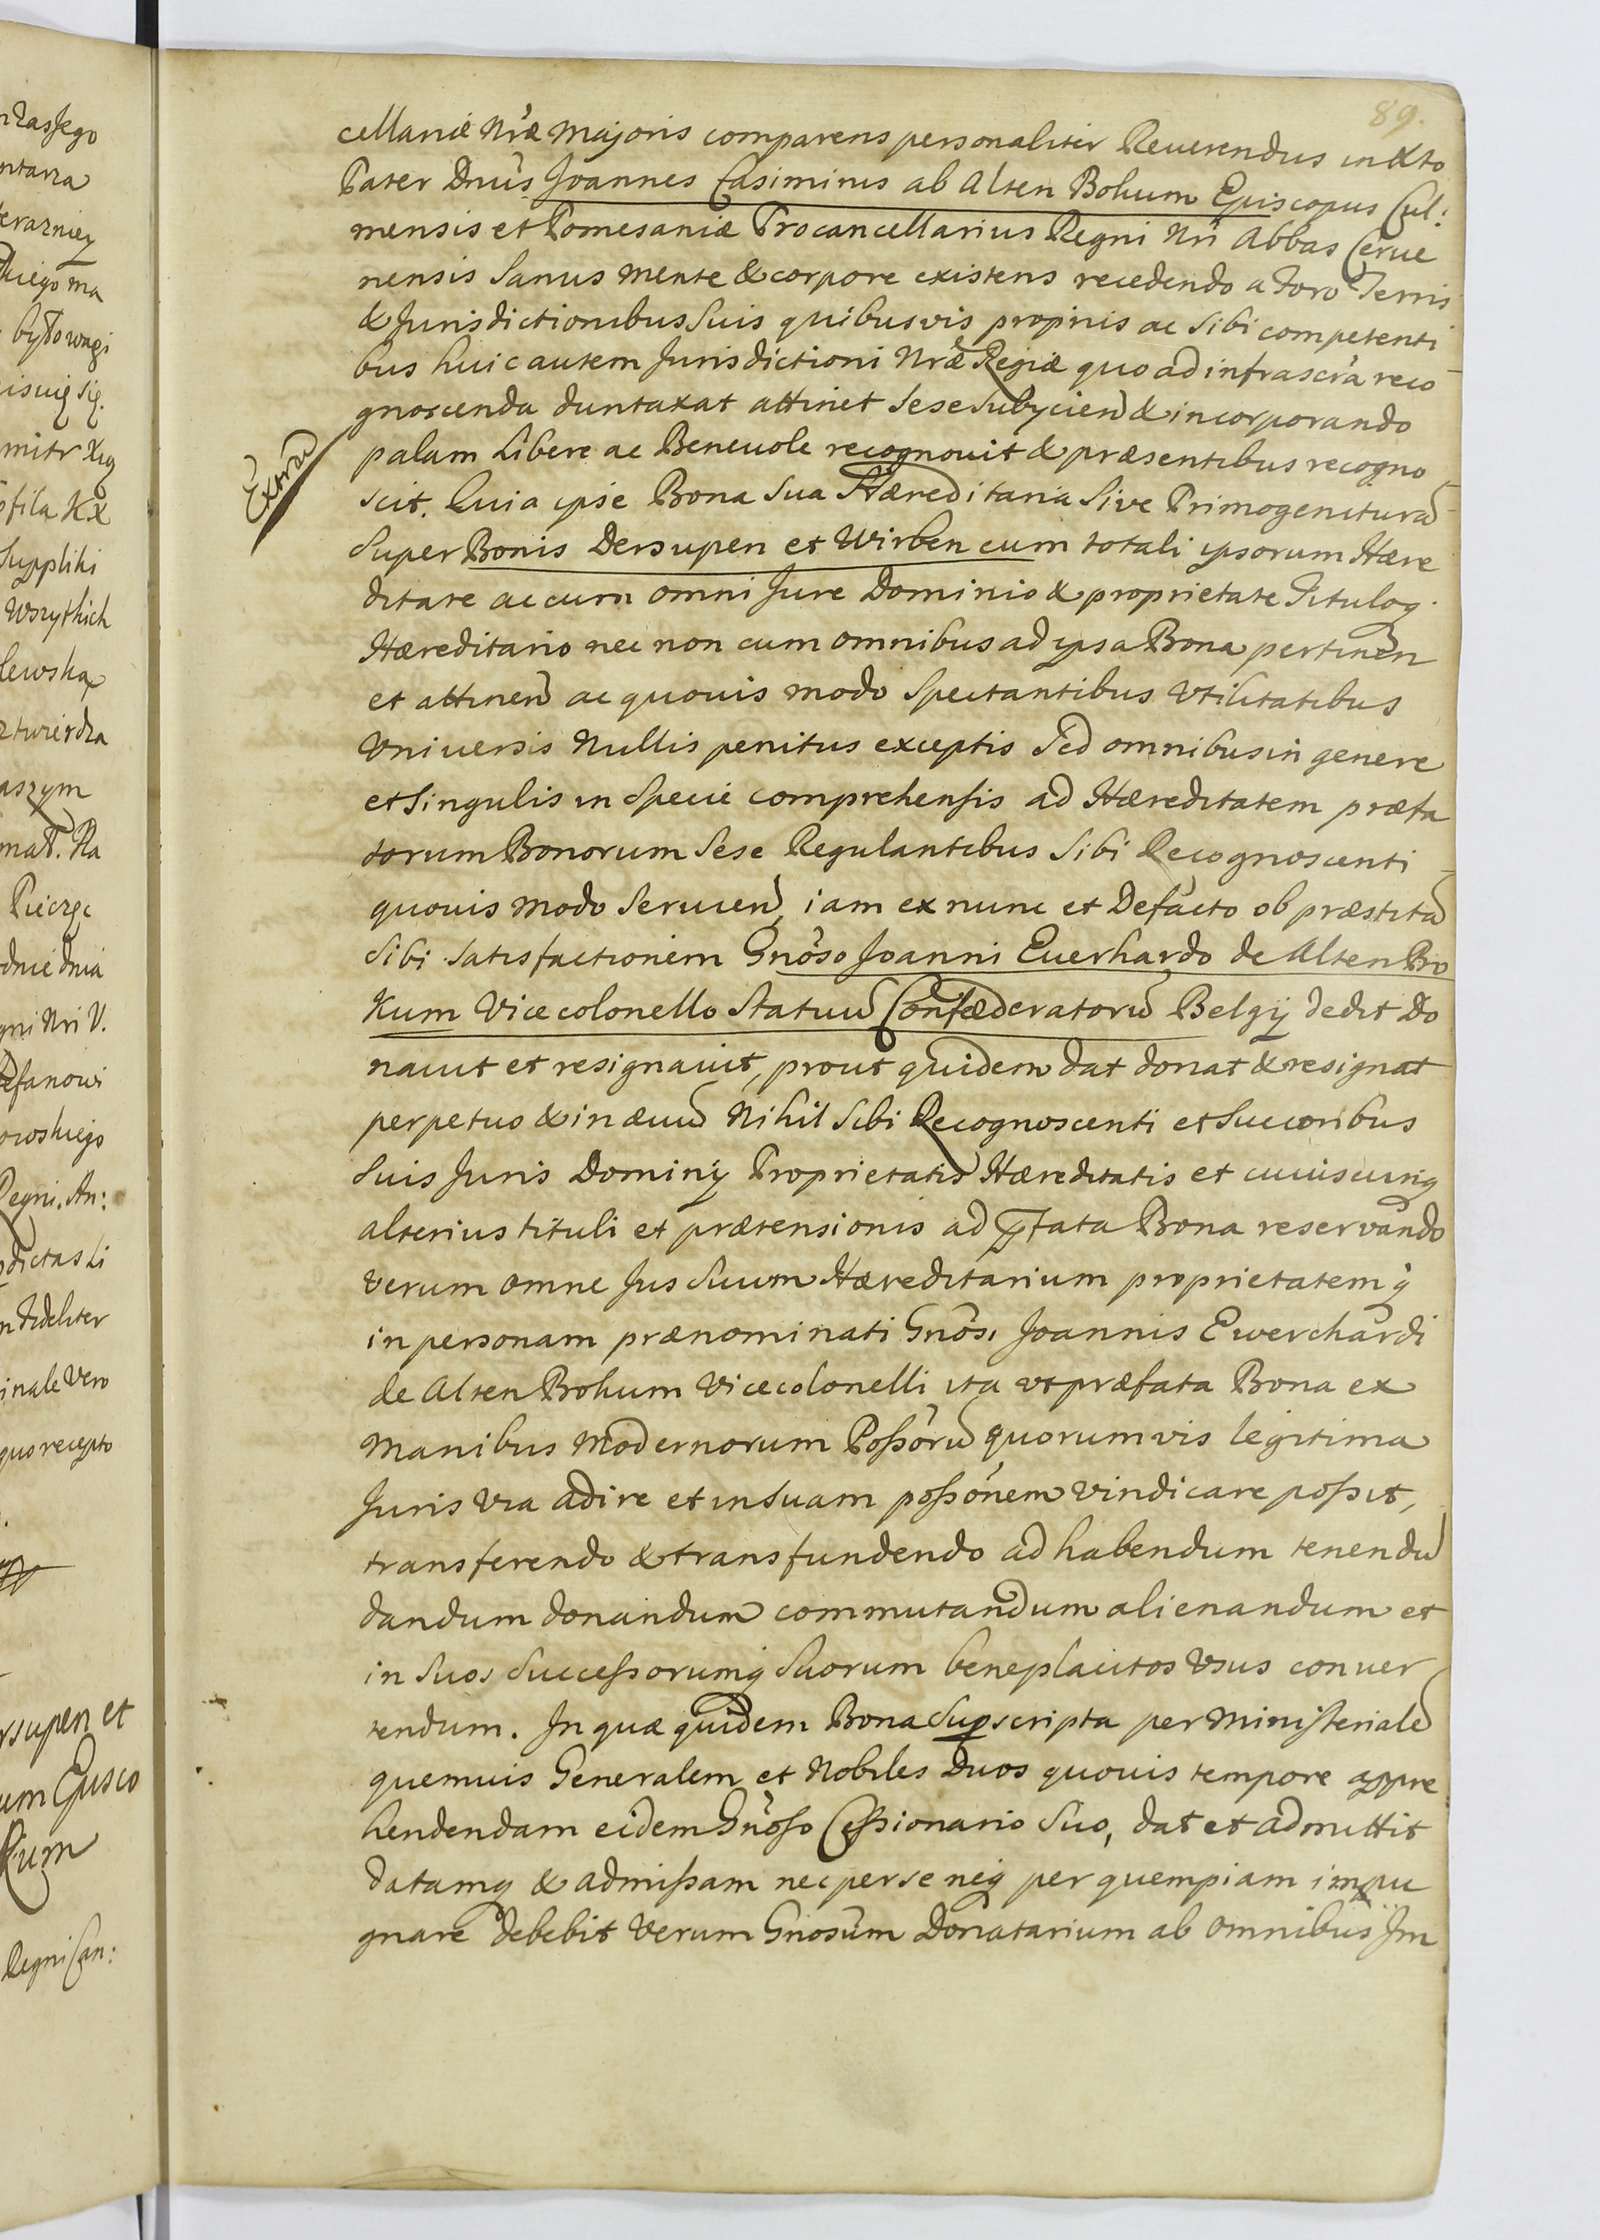 89.
cellariæ Nr̃æ Majoris comparens personaliter Reuerendus in Xto
Pater Dnũs Joannes Casimirus ab Alten Bokum Episcopus Cul:
mensis et Pomesaniæ Procancellarius Regni Nri Abbas Cerue
nensis Sanus Mente & corpore existens recedendo a Foro Terris
& Jurisdictionibus Suis quibusvis proprijs ac Sibi competenti
bus huic autem Jurisdictioni Nr̃æ Regiæ quo ad infrascr̃a reco
gnoscenda duntaxat attinet Sese Subycien̄ & incorporando
palam Libere ac Beneuole recognouit & præsentibus recogno
Extrad̄
scit. Quia ipse Bona Sua Hæreditaria Sive Primogenitura
Super Bonis Dersupen et Wirben cum totali ipsorum Hære
ditate ac cum omni Jure Dominio & proprietate Tituloq
Hæreditario nec non cum omnibus ad ipsa Bona pertinen̄
et attinen̄ ac quouis modo Spectantibus Vtilitatibus
Vniuersis Nullis penitus exceptis Sed omnibus in genere
et Singulis in Specie comprehensis ad Hæreditatem præfa
torum Bonorum Sese Regulantibus Sibi Recognoscenti
quouis modo Seruien̄, iam ex nunc et Defacto ob præstita
Sibi Satisfactionem Gnõso Joanni Euerhardo de Alten Bo
Kum Vicecolonello Statuū Confæderatorū Belgij dedit Do
nauit et resignauit, prout quidem dat donat & resignat
perpetuo & in æuū Nihil Sibi Recognoscenti et Succoribus
Suis Juris Dominij Proprietatis Hæreditatis et cuiuscunq
alterius tituli et prætensionis ad p̄fata Bona reservando
Verum omne Jus Suum Hæreditarium proprietatemq̃
in personam prænominati Gnõsi Joannis Ewerchardi
de Alten Bokum Vicecolonelli ita vt præfata Bona ex
Manibus Modernorum Poßõrū quorumvis legitima
Juris Via adire et in Suam poßõnem Vindicare poßit,
transferendo & transfundendo ad habendum tenendū
dandum donandum commutandum alienandum et
in Suos Succeßorumq Suorum beneplacitos Vsus conuer
tendum. In quæ quidem Bona Supscripta per Ministerialē
quemuis Generalem et Nobiles Duos quouis tempore appre
hendendam eidem Gnõso Ceßionario Suo, dat et admittit
datamq & admißam nec per se neq per quempiam impu
gnare debebit Verum Gnosũm Donatarium ab omnibus Im